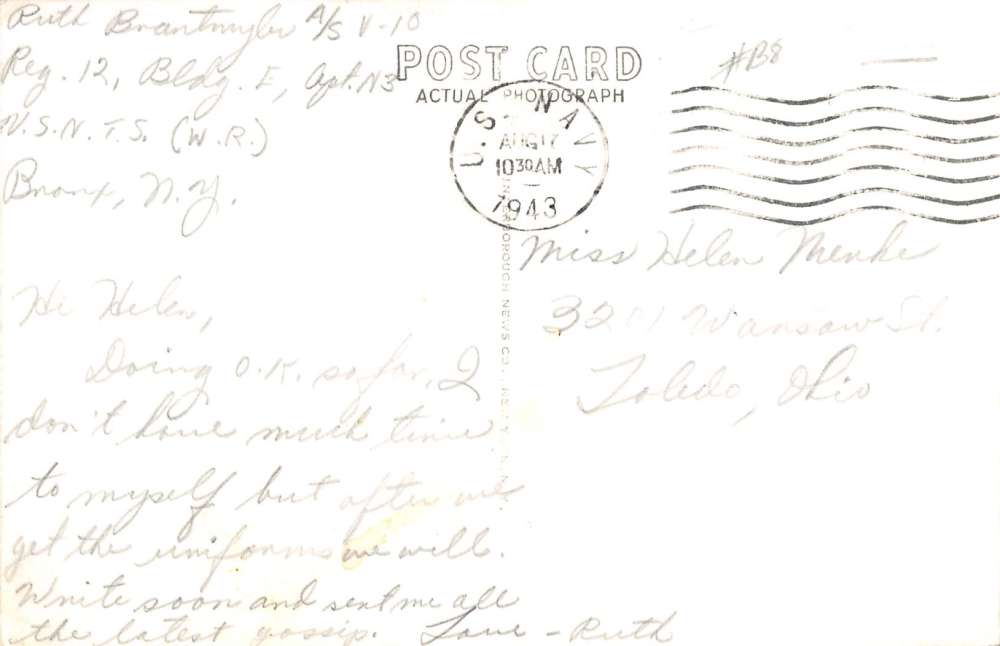 Ruth A/S V-10
Reg. 12, Bldg. E, Apt. N3
U.S.N.T.S. (W.R.)
Bronx, N.Y.
POST CARD
ACTUAL PHOTOGRAPH
#B8
U.S. NAVY
AUG 17
10 30 AM
1943
Miss Helen Menke
3201 Warsaw St.
Toledo, Ohio
Hi Helen,
Doing O.K. so far, I
don't have much time
to myself but after we
get the uniforms we will.
Write soon and sent me all
the latest gossip. Love - Ruth
NEWS CO.